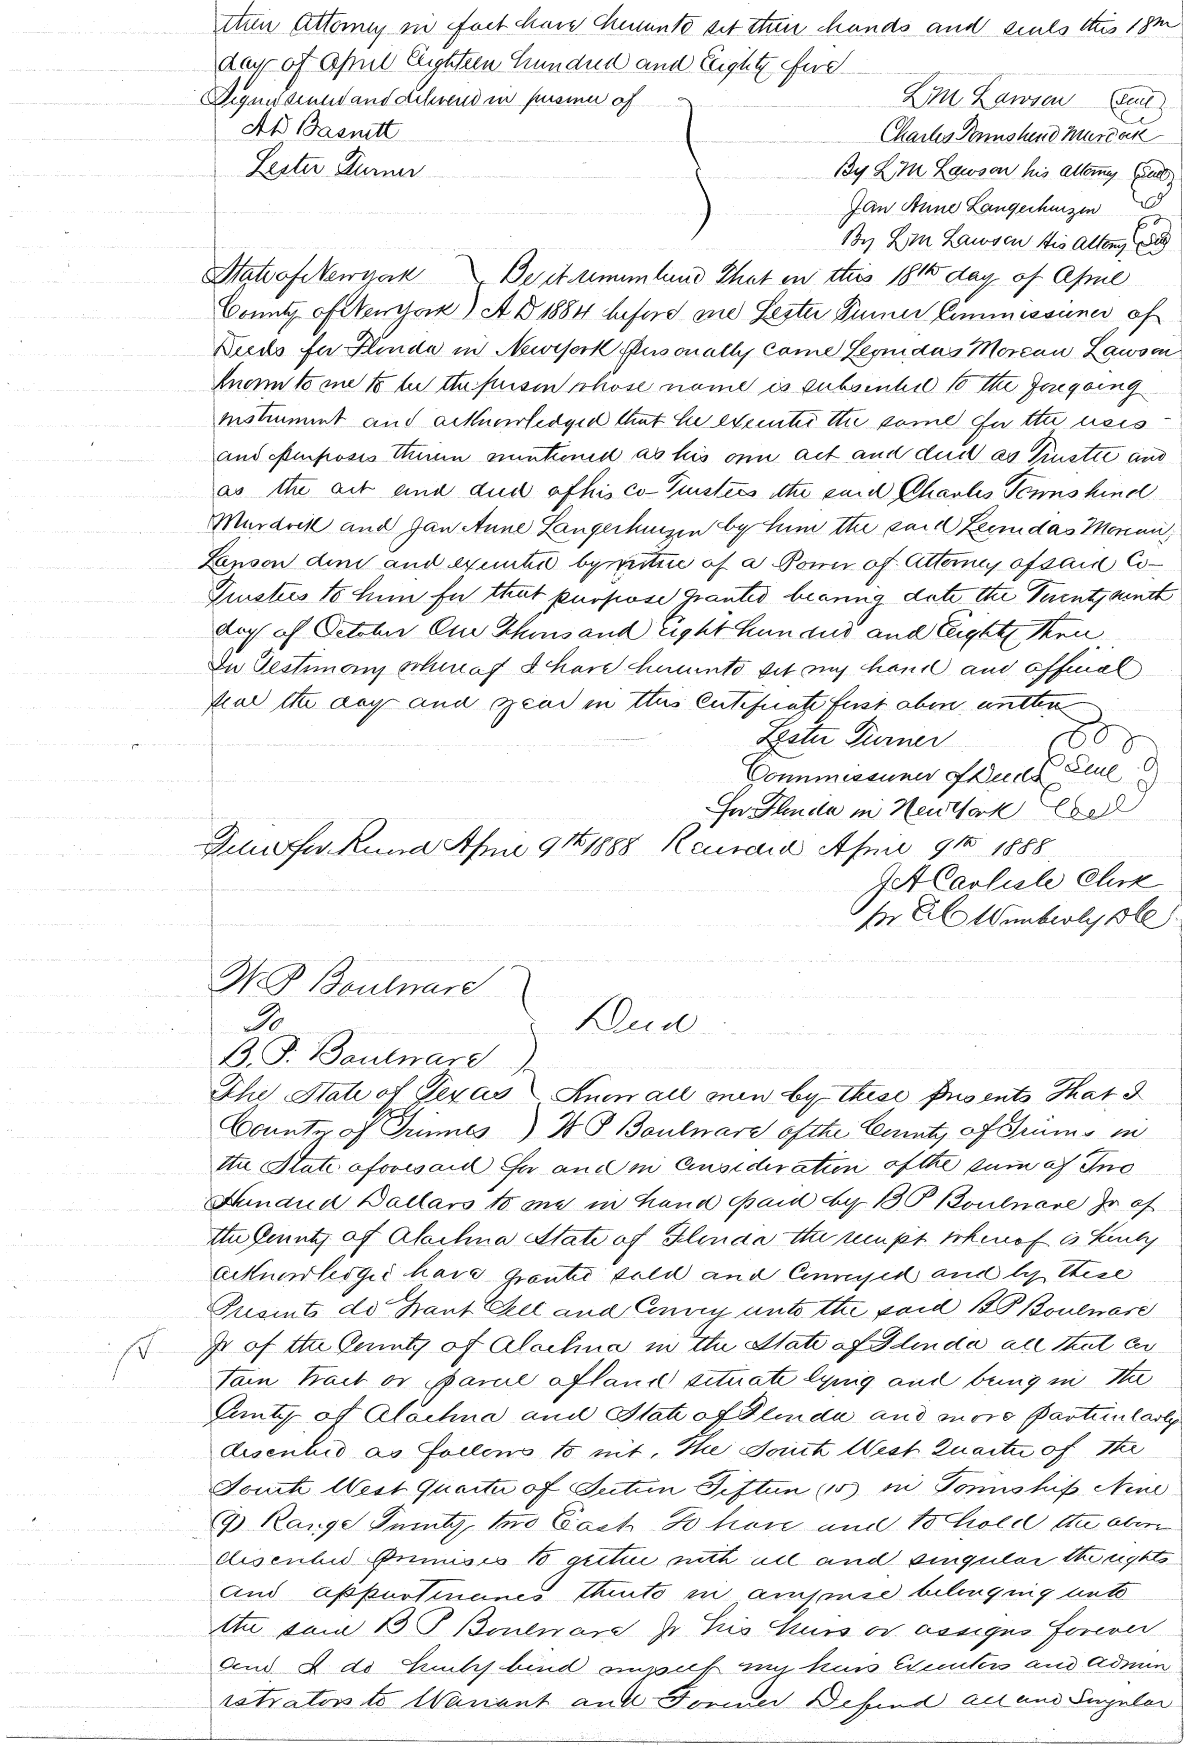 their Attorney in fact have hereunto set their hands and seals this 18th
day of April Eighteen hundred and Eighty five
Signed sealed and delivered in presence of
L M Lawson (Seal)
A D Basnett
Charles Townshend Murdock
Lester Turner
By L M Lawson his Attorney (Seal)
Jan Anne Langerhuizen
By L M Lawson His Attony (Seal)
State of New York ) Be it remembered That on this 18th day of April
County of New York ) A D 1884 before me Lester Turner Commissioner of
Deeds for Florida in New York Personally came Leonidas Moreau Lawson
known to me to be the person whose name is subscribed to the foregoing
instrument and acknowledged that he executed the same for the uses
and purposes therein mentioned as his own act and deed as Trustee and
as the act and deed of his co-Trustees the said Charles Townshend
Murdock and Jan Anne Langerhuizen by him the said Leonidas Moreau
Lawson done and executed by virtue of a Power of Attorney of said Co-
Trustees to him for that purpose granted bearing date the Twenty ninth
day of October One Thousand eight hundred and Eighty three
In Testimony whereof I have hereunto set my hand and official
seal the day and year in this Certificate first above written
Lester Turner
Commissioner of Deeds Seal
for Florida in New York
Filed for Record April 9th 1888 Recorded April 9th 1888
J A Carlisle Clerk
pr Wimberly D C
W. P Boulware
To Deed
B. P. Boulware )
The State of Texas ) Know all men by these presents That I
County of Grimes ) W P Boulware of the County of Grimes in
the State aforesaid for and in Consideration of the sum of Two
Hundred Dollars to me in hand paid by B P Boulware Jr of
the County of Alachua State of Florida the receipt whereof is hereby
acknowledged have granted sold and Conveyed and by these
Presents do Grant Sell and Convey unto the said B P Boulware
Jr of the County of Alachua in the State of Florida all that cer
tain tract or parcel of land situate lying and being in the
County of Alachua and State of Florida and more particularly
described as follows to wit, The South West Quarter of the
South West Quarter of Section Fifteen (15) in Township Nine
(9) Range Twenty, two East To have and to hold the above
described premises to gether with all and singular the rights
and appurtenances thereto in anywise belonging unto
the said B P Boulware Jr his heirs or assigns forever
and I do hereby bind myself my heirs Executors and admin
istrators to Warrant and Forever Defend all and Singular